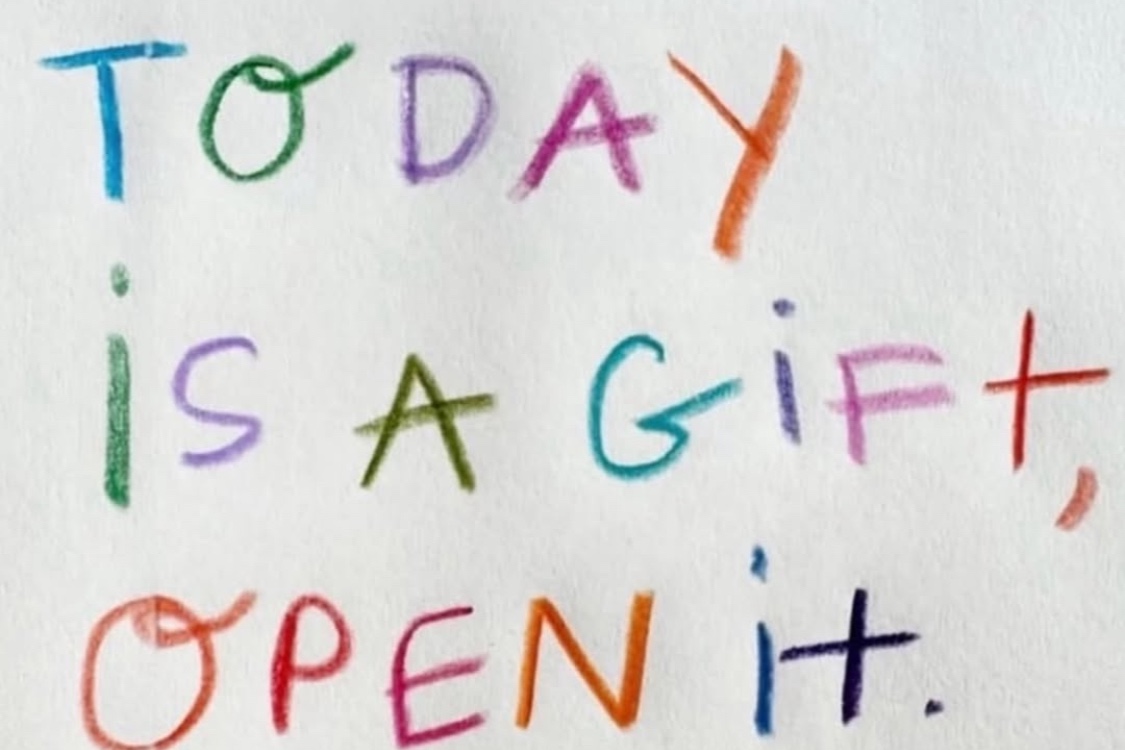 TODAY
iS A GiFt,
OPEN it.